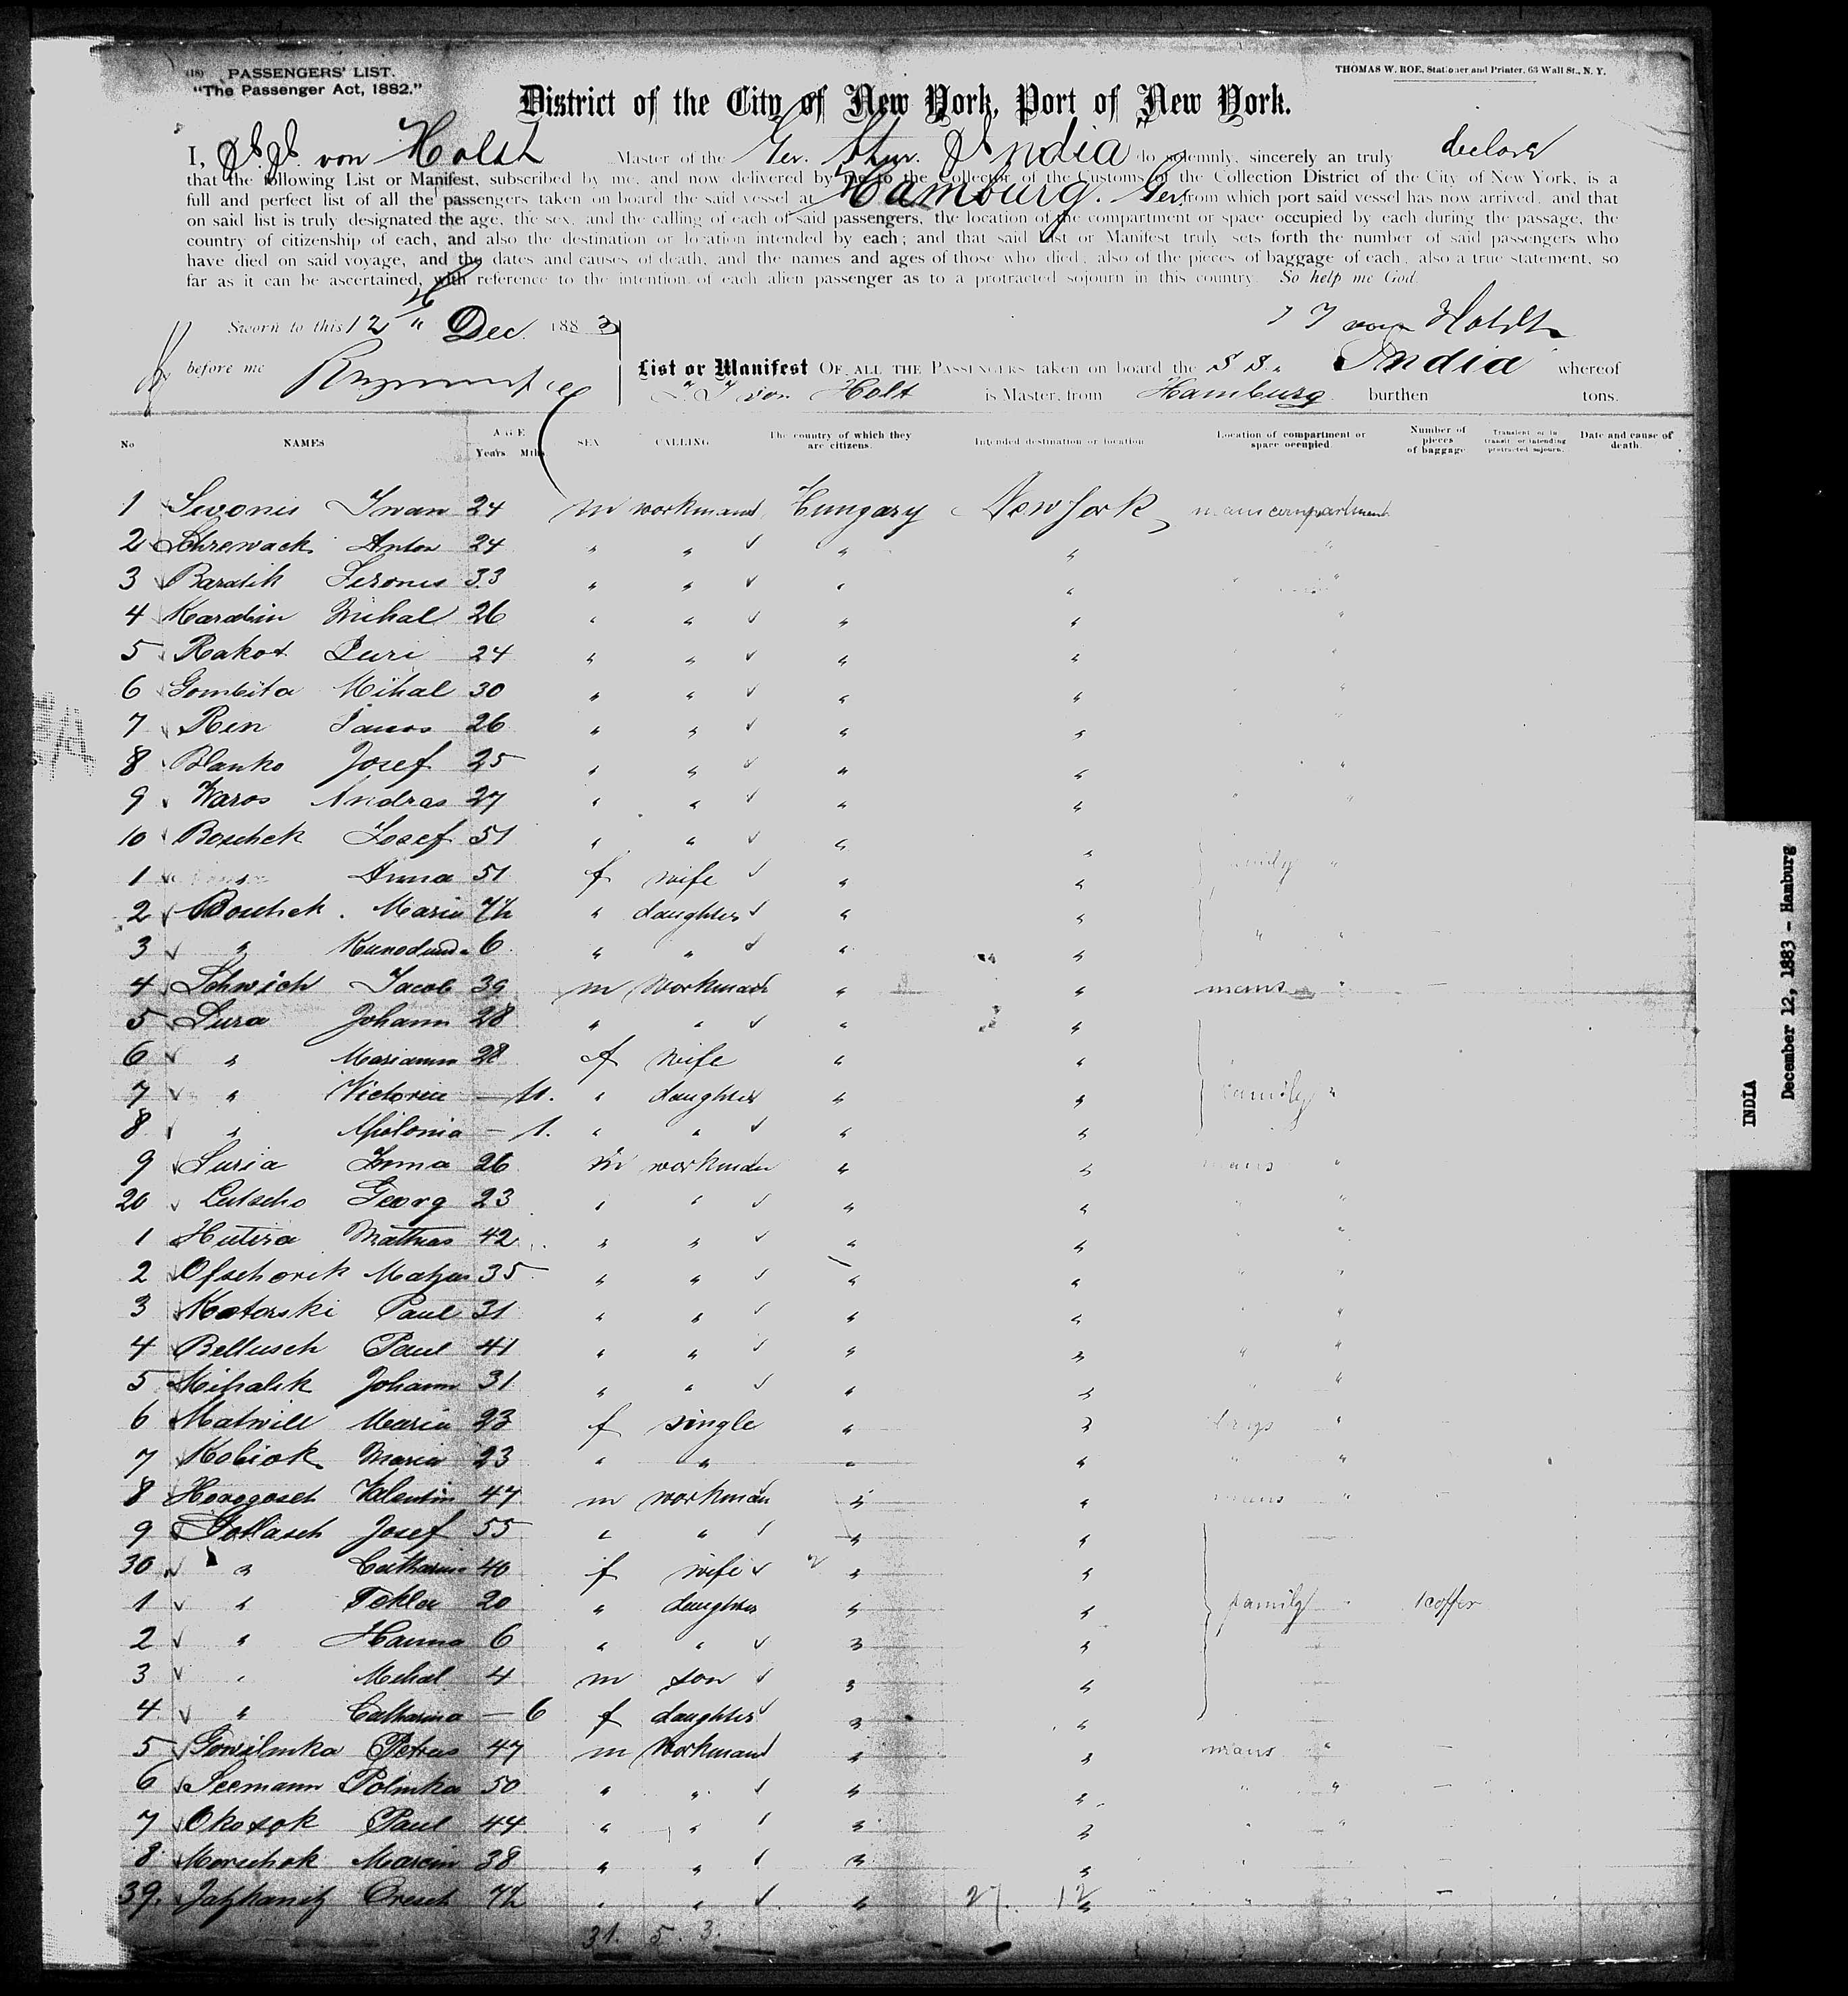 (18) PASSENGERS' LIST.
"The Passenger Act, 1882."
THOMAS W. ROE, Stationer and Printer, 63 Wall St., N. Y.
District of the City of New York, Port of New York.
I, J. J. von Holdt Master of the Ger. Stmr. India do solemnly, sincerely an truly declare
that the following List or Manifest, subscribed by me, and now delivered by me to the Collector of the Customs of the Collection District of the City of New York, is a
full and perfect list of all the passengers taken on board the said vessel at Hamburg. Ger. from which port said vessel has now arrived, and that
on said list is truly designated the age, the sex, and the calling of each of said passengers, the location of the compartment or space occupied by each during the passage, the
country of citizenship of each, and also the destination or location intended by each; and that said List or Manifest truly sets forth the number of said passengers who
have died on said voyage, and the dates and causes of death, and the names and ages of those who died; also of the pieces of baggage of each, also a true statement, so
far as it can be ascertained, with reference to the intention of each alien passenger as to a protracted sojourn in this country. So help me God.
Sworn to this 12 th Dec. 1883
J J von Holdt
before me
List or Manifest OF ALL THE PASSENGERS taken on board the S S. India whereof
J. J von Holdt is Master, from Hamburg burthen tons.
No NAMES AGE Years Mths SEX CALLING The country of which they are citizens. Intended destination or location Location of compartment or space occupied Number of pieces of baggage Transient or in transit or intending protracted sojourn. Date and cause of death
1 Sevonis Iwan 24 m workman Hungary New York mans compartment
2 Schrewack Anton 24 " " " "
3 Baratik Seronis 33 " " " "
4 Karabin Mihal 26 " " " " "
5 Rakot Juri 24 " " " " "
6 Gombita Mihal 30 " " " " "
7 Ren Janos 26 " " " "
8 Blanko Josef 25 " " " " "
9 Waros Andras 27 " " " " " "
10 Boschek Josef 51 " " " "
1 " Anna 51 f wife " " family "
2 Boschek Maria 7½ " daughter " "
3 " Kunodunda 6 " " " " " "
4 Schwich Jacob 39 m workman " " mans "
5 Sura Johann 28 " " " "
6 " Mariann 28 f wife " "
7 " Victoria — 11. " daughter " " family "
8 " Apolonia — 1. " " " "
9 Suria Imma 26 m workman " " mans "
20 Lutscho Georg 23 " " " " " "
1 Hutira Mathias 42 " " " " "
2 Ofschorik Matjas 35 " " " " " "
3 Kotorski Paul 31 " " " " "
4 Bellusch Paul 41 " " " " " "
5 Mihalik Johann 31 " " " " " "
6 Matwill Maria 23 f single " " "
7 Kobiok Maria 23 " " " " " "
8 Horogosch Valentin 47 m workman " " mans "
9 Gollasch Josef 55 " " " "
30 " Catharina 40 f wife " "
1 " Tekla 20 " daughter " " family " 1 coffer
2 " Hanna 6 " " " "
3 " Mihal 4 m son " "
4 " Catharina — 6 f daughter " "
5 Gowilnka Petrus 47 m workman " " mans " —
6 Seemann Polinka 50 " " " " " " —
7 Okosok Paul 44 " " " " " "
8 Morschok Marcin 38 " " " "
39. Jatzkanitz Oresch 7½ " " " " —
27. 12
31. 5. 3.
INDIA
December 12, 1883 - Hamburg